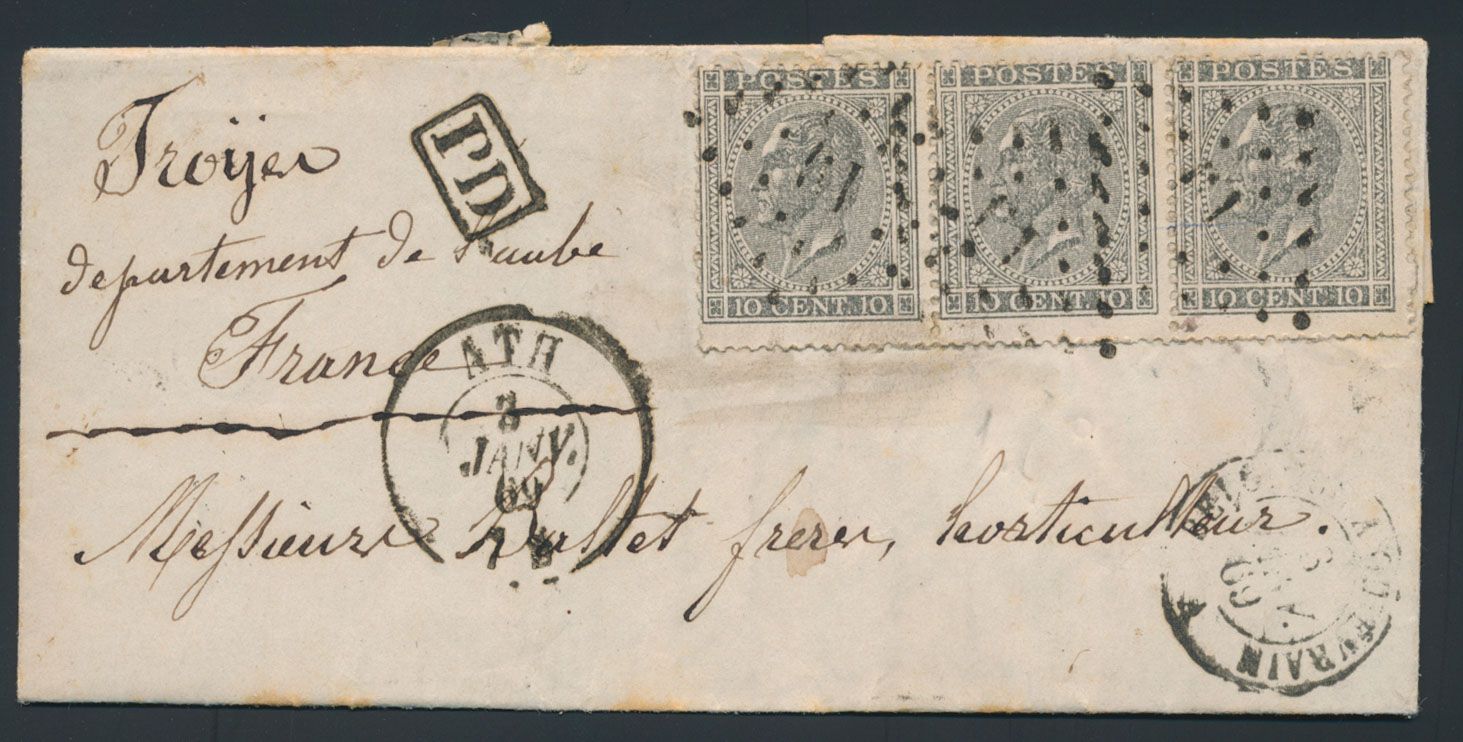 Troyes
département de l'aube
France
PD
POSTES POSTES POSTES
10 CENT 10 10 CENT 10 10 CENT 10
ATH
3
JANV.
69
Messieurs Baltet freres, horticulteur.
69
QUIEVRAIN